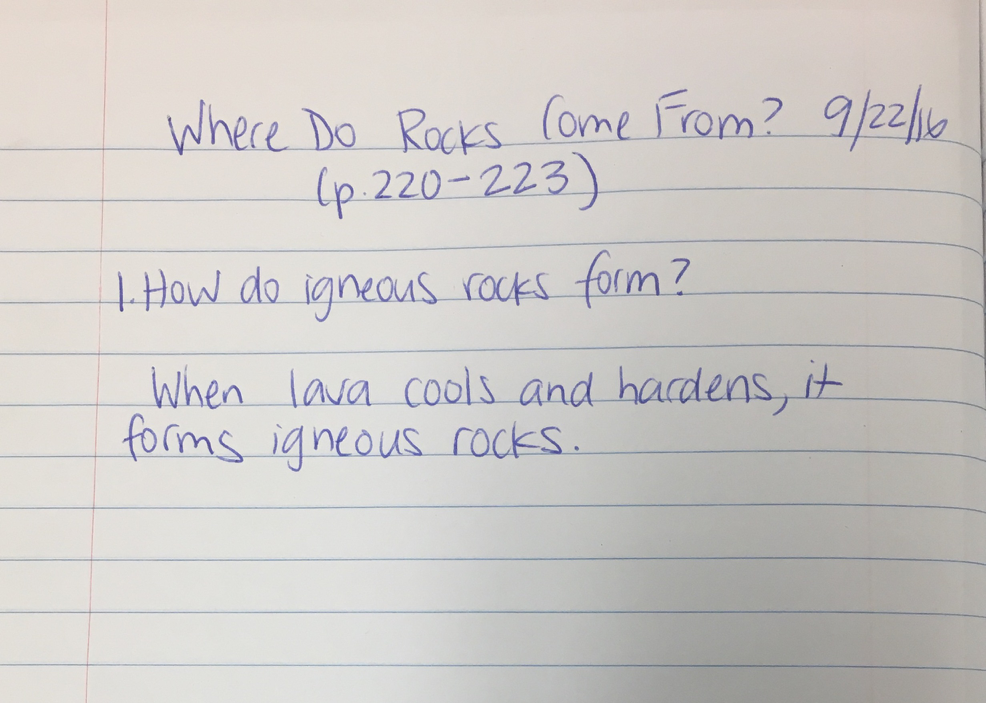 Where Do Rocks Come From? 9/22/16
(p.220-223)
1. How do igneous rocks form?
When lava cools and hardens, it
forms igneous rocks.